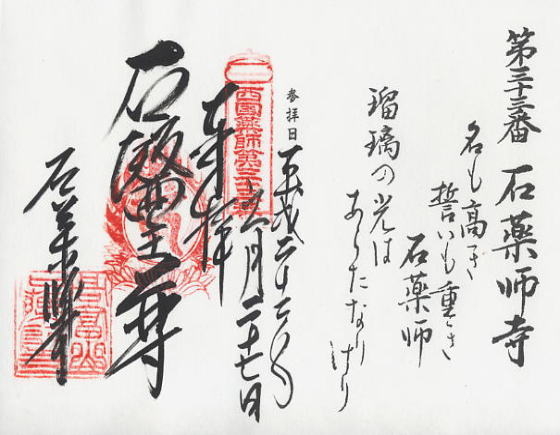 第三十三番 石薬師寺
名も高き
誓いも重き
石薬師
瑠璃の光は
あらたなりけり
参拝日
平成二十二年
六月二十七日
西國薬師第三十三番
奉拝
石醫王尊
石薬師寺